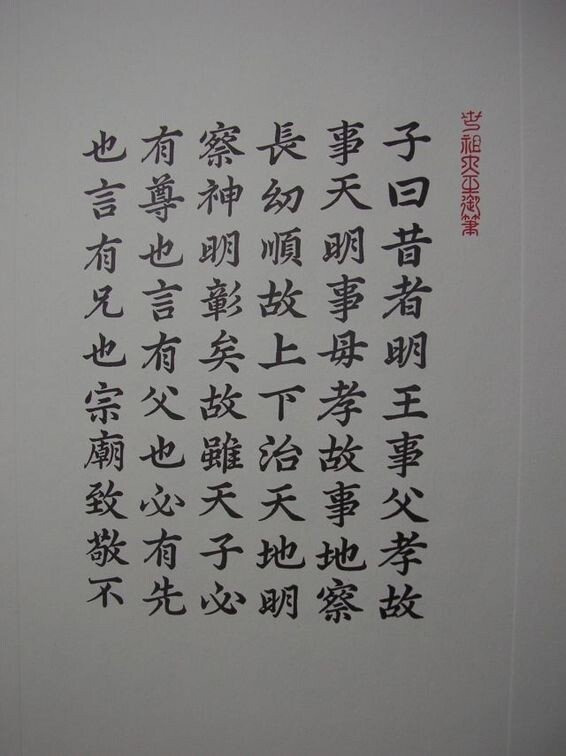 世祖大王御筆
子曰昔者明王事父孝故
事天明事母孝故事地察
長幼順故上下治天地明
察神明彰矣故雖天子必
有尊也言有父也必有先
也言有兄也宗廟致敬不